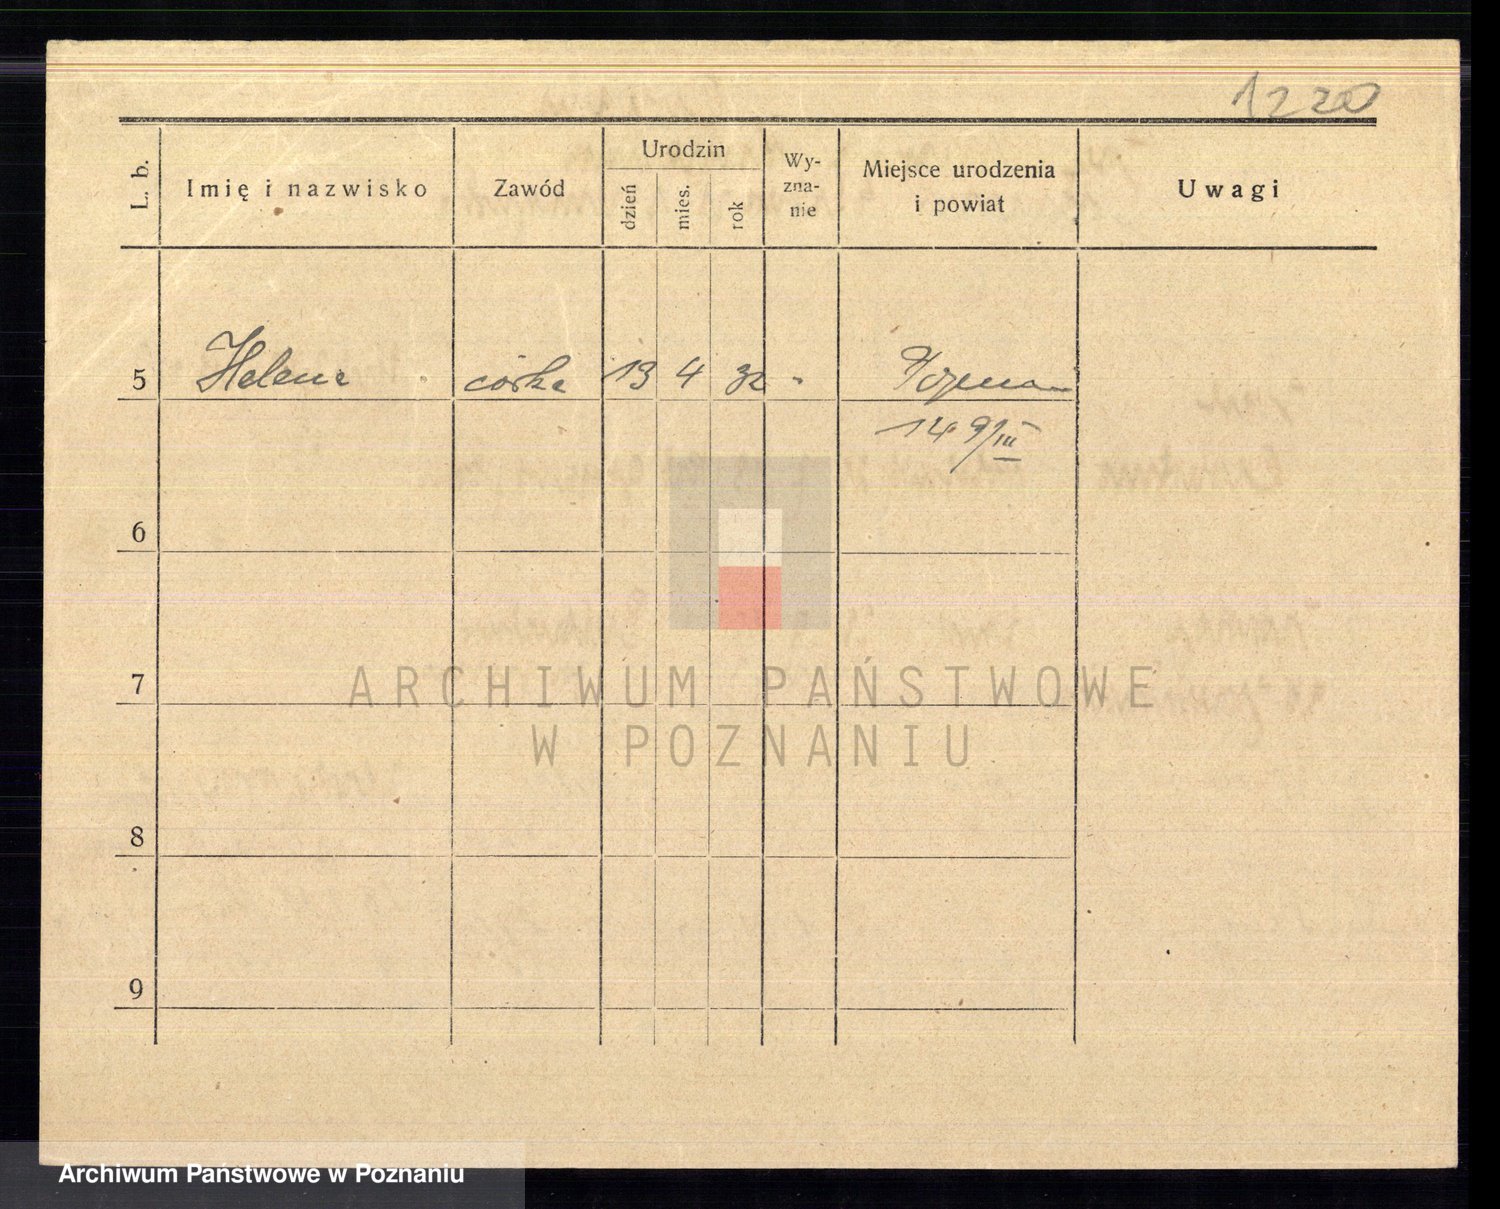 1220
L. b. Imię i nazwisko Zawód Urodzin dzień mies. rok Wy-zna-nie Miejsce urodzenia i powiat Uwagi
5 Helena córka 13 4 32 " Poznań
149/III
6
7
ARCHIWUM PAŃSTWOWE
W POZNANIU
8
9
Archiwum Państwowe w Poznaniu